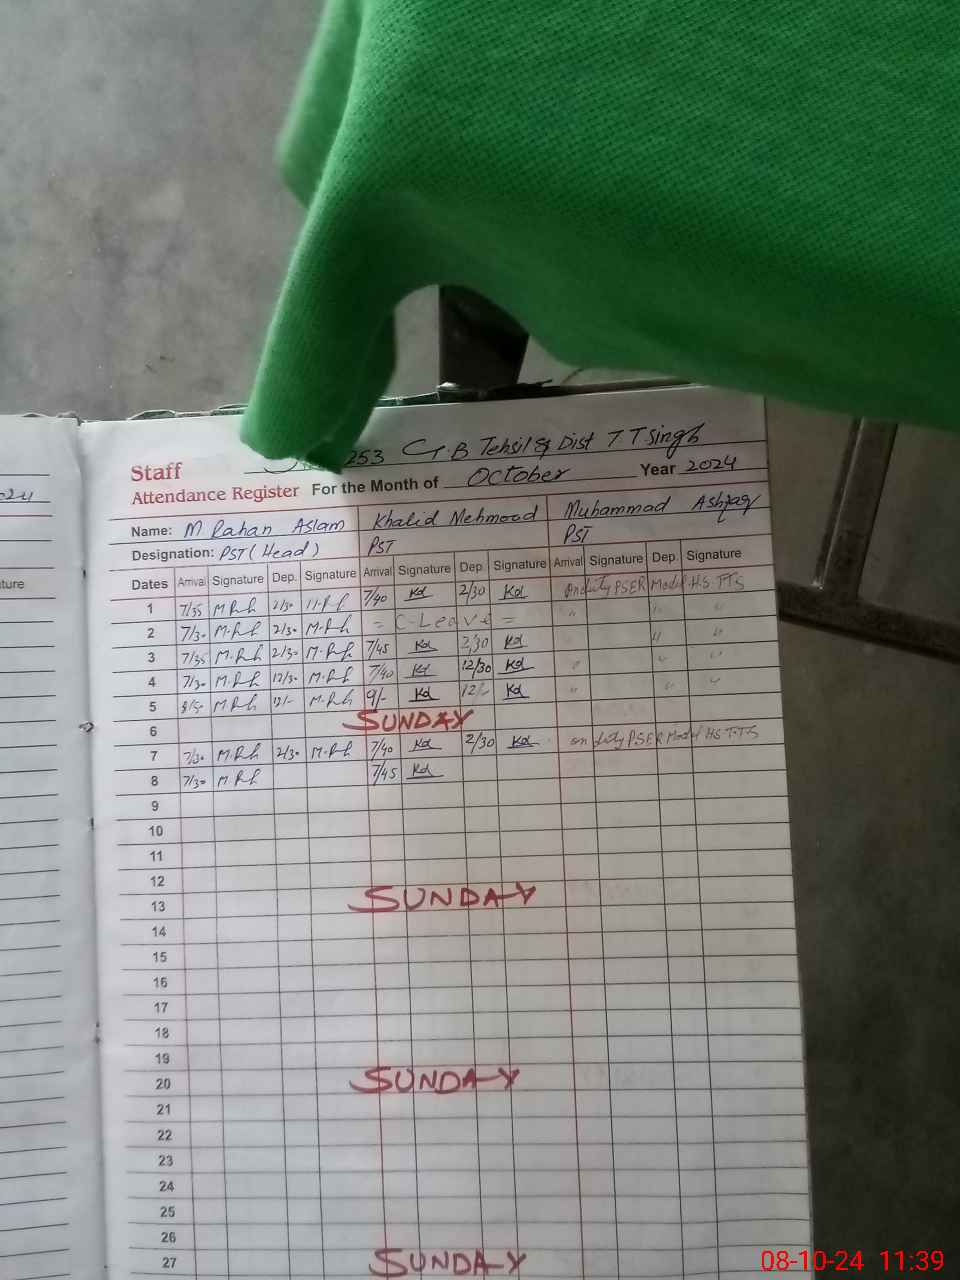 253 G.B Tehsil & Dist T.T Singh
Staff
Attendance Register For the Month of October Year 2024
Name: M Rahan Aslam Khalid Mehmood Muhammad Ashfaq
Designation: PST (Head) PST PST
Dates Arrival Signature Dep. Signature Arrival Signature Dep. Signature Arrival Signature Dep. Signature
1 7/55 2/30 7/40 Kd 2/30 Kd On duty PSER Model H.S. TTS
2 7/30 2/30 = C-Leave = " " "
3 7/35 2/30 7/45 Kd 2/30 Kd " "
4 7/30 12/30 7/40 Kd 12/30 Kd " " "
5 9/- Kd 12/- Kd " " "
6 SUNDAY
7 7/30 2/30 7/40 Kd 2/30 Kd on duty PSER Model HS T.T.S
8 7/30 7/45 Kd
9
10
11
12
13 SUNDAY
14
15
16
17
18
19
20 SUNDAY
21
22
23
24
25
26
27 SUNDAY
08-10-24 11:39